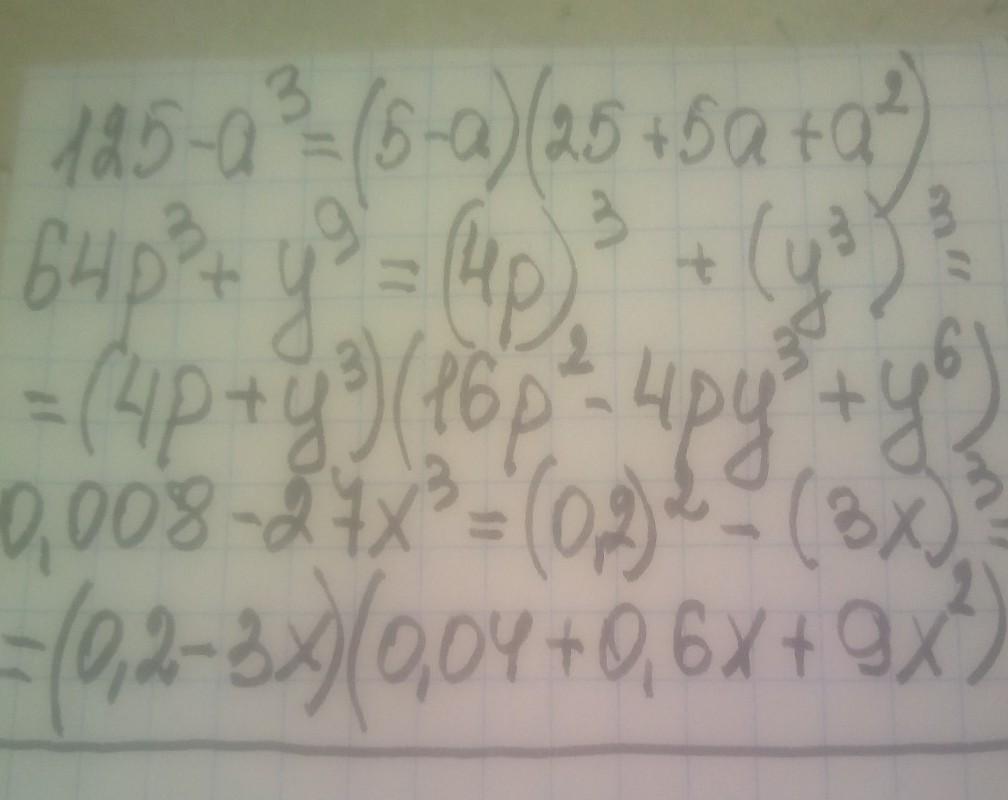 125-a³=(5-a)(25+5a+a²)
64p³+y⁹=(4p)³+(y³)³=
=(4p+y³)(16p²-4py³+y⁶)
0,008-27x³=(0,2)²-(3x)³=
=(0,2-3x)(0,04+0,6x+9x²)